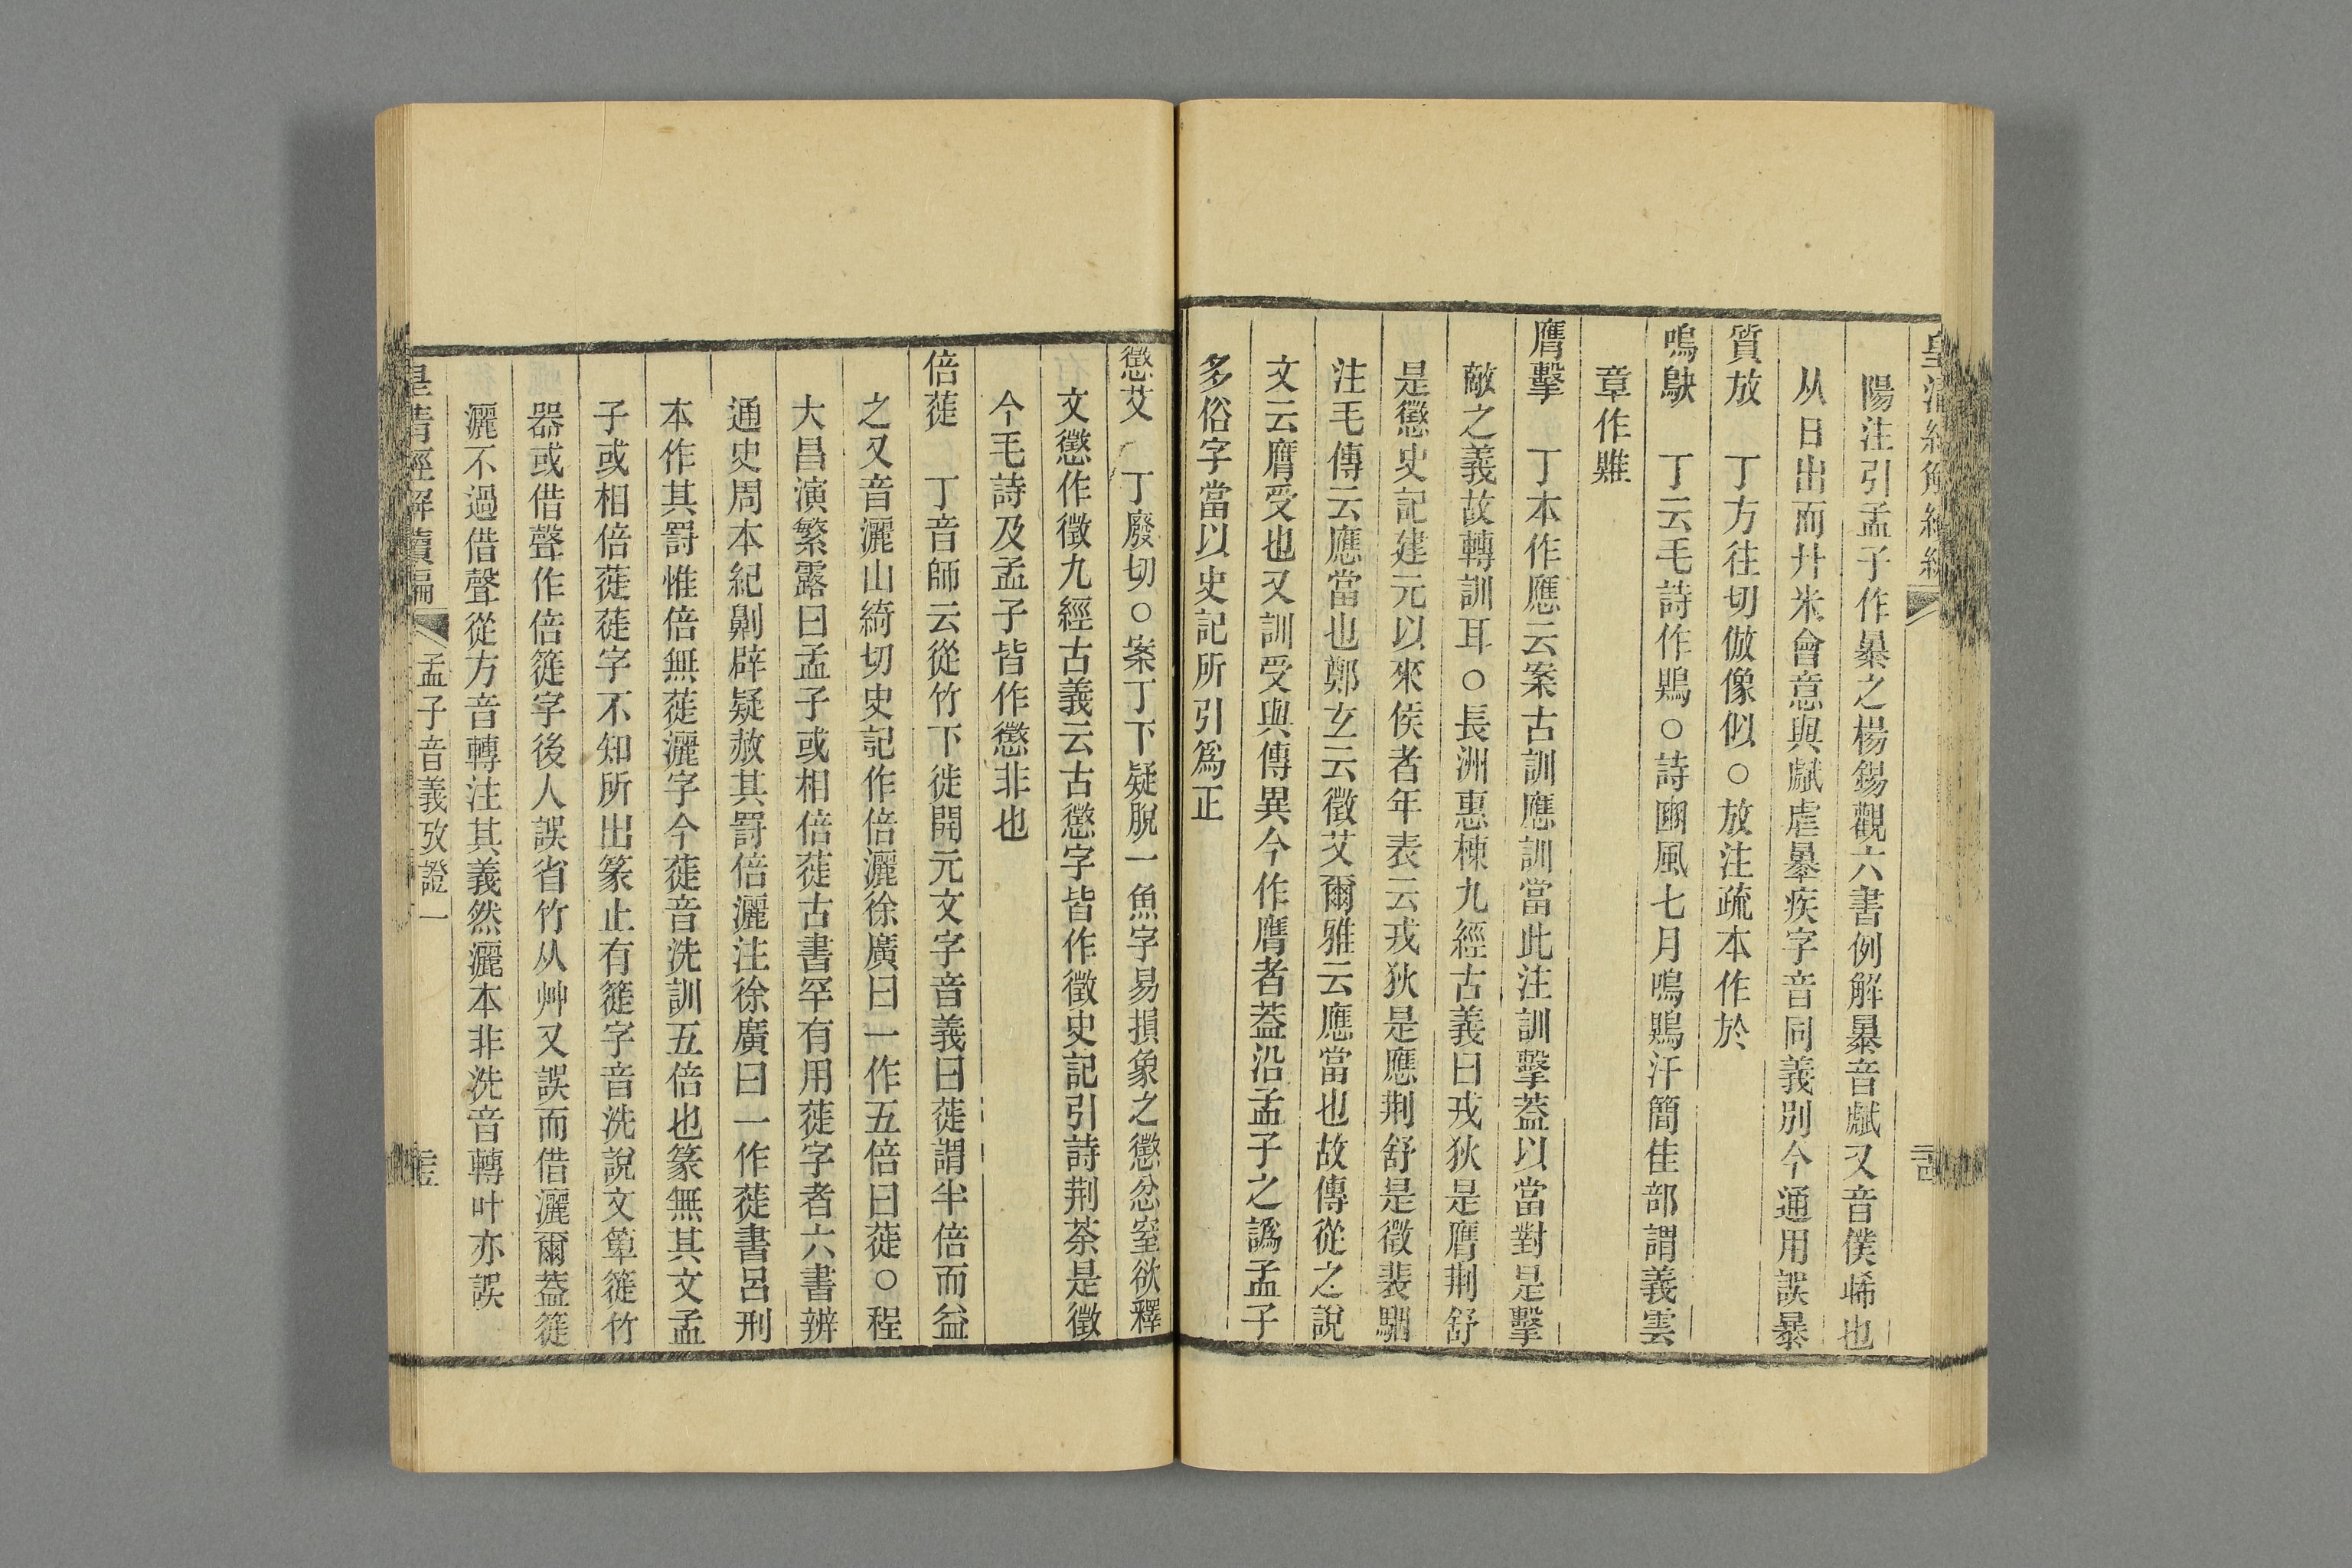 陽注引孟子作暴之楊錫觀六書例解暴音虣又音僕晞也
从日出而廾米會意與虣虐暴疾字音同義別今通用誤暴
質放　丁方往切倣像似○放注疏本作於
鳴鴃　丁云毛詩作鵙○詩豳風七月鳴鵙汗簡隹部謂義雲
章作雖
膺擊　丁本作應云案古訓應訓當此注訓擊蓋以當對是擊
敵之義故轉訓耳○長洲惠棟九經古義曰戎狄是膺荆舒
是懲史記建元以來侯者年表云戎狄是應荆舒是徵裴駰
注毛傳云應當也鄭玄云徵艾爾雅云應當也故傳從之說
文云膺受也又訓受與傳異今作膺者蓋沿孟子之譌孟子
多俗字當以史記所引爲正
懲艾　丁廢切○案丁下疑脫一魚字易損象之懲忿窒欲釋
文懲作徵九經古義云古懲字皆作徵史記引詩荆荼是徵
今毛詩及孟子皆作懲非也
倍蓰　丁音師云從竹下徙開元文字音義曰蓰謂半倍而益
之又音灑山綺切史記作倍灑徐廣曰一作五倍曰蓰○程
大昌演繁露曰孟子或相倍蓰古書罕有用蓰字者六書辨
通史周本紀劓辟疑赦其罰倍灑注徐廣曰一作蓰書呂刑
本作其罰惟倍無蓰灑字今蓰音洗訓五倍也篆無其文孟
子或相倍蓰蓰字不知所出篆止有簁字音洗說文箄簁竹
器或借聲作倍簁字後人誤省竹从艸又誤而借灑爾蓋簁
灑不過借聲從方音轉注其義然灑本非洗音轉叶亦誤
皇清經解續編　孟子音義攷證一